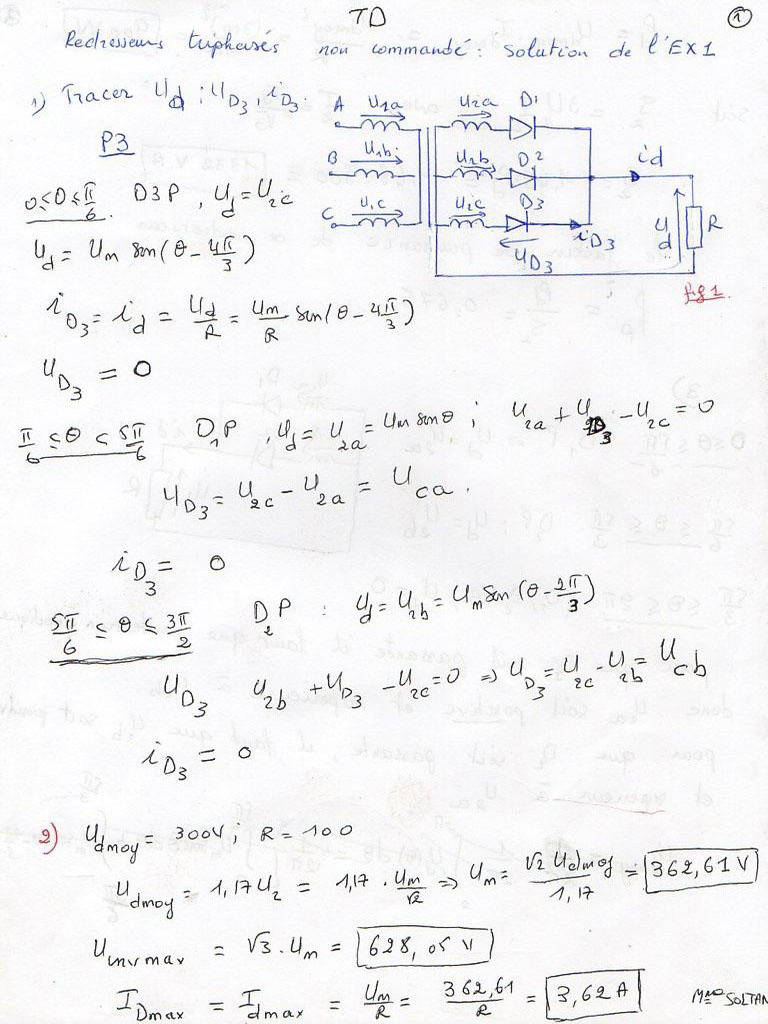 TD
①
Redresseurs triphasés non commandé : Solution de l'EX1
1) Tracer Ud ; UD3, iD3.
P3
A U1a U2a D1
B U1b U2b D2 id
C U1c U2c D3 iD3 UD3 Ud R
fig 1.
0≤θ≤π/6. D3P, Ud = U2c
Ud = Um sin(θ - 4π/3)
iD3 = id = Ud/R = Um/R sin(θ - 4π/3)
UD3 = 0
π/6 ≤ θ ≤ 5π/6 D1P, Ud = U2a = Um sinθ ; U2a + UD3 - U2c = 0
UD3 = U2c - U2a = Uca.
iD3 = 0
5π/6 ≤ θ ≤ 3π/2 D2P : Ud = U2b = Um sin(θ - 2π/3)
UD3 U2b + UD3 - U2c = 0 ⇒ UD3 = U2c - U2b = Ucb
iD3 = 0
2) Udmoy = 300V ; R = 100
Udmoy = 1,17 U2 = 1,17 . Um/√2 ⇒ Um = √2 Udmoy/1,17 = 362,61 V
Uinvmax = √3 . Um = 628,05 V
IDmax = Idmax = Um/R = 362,61/R = 3,62 A
Mme SOLTAN